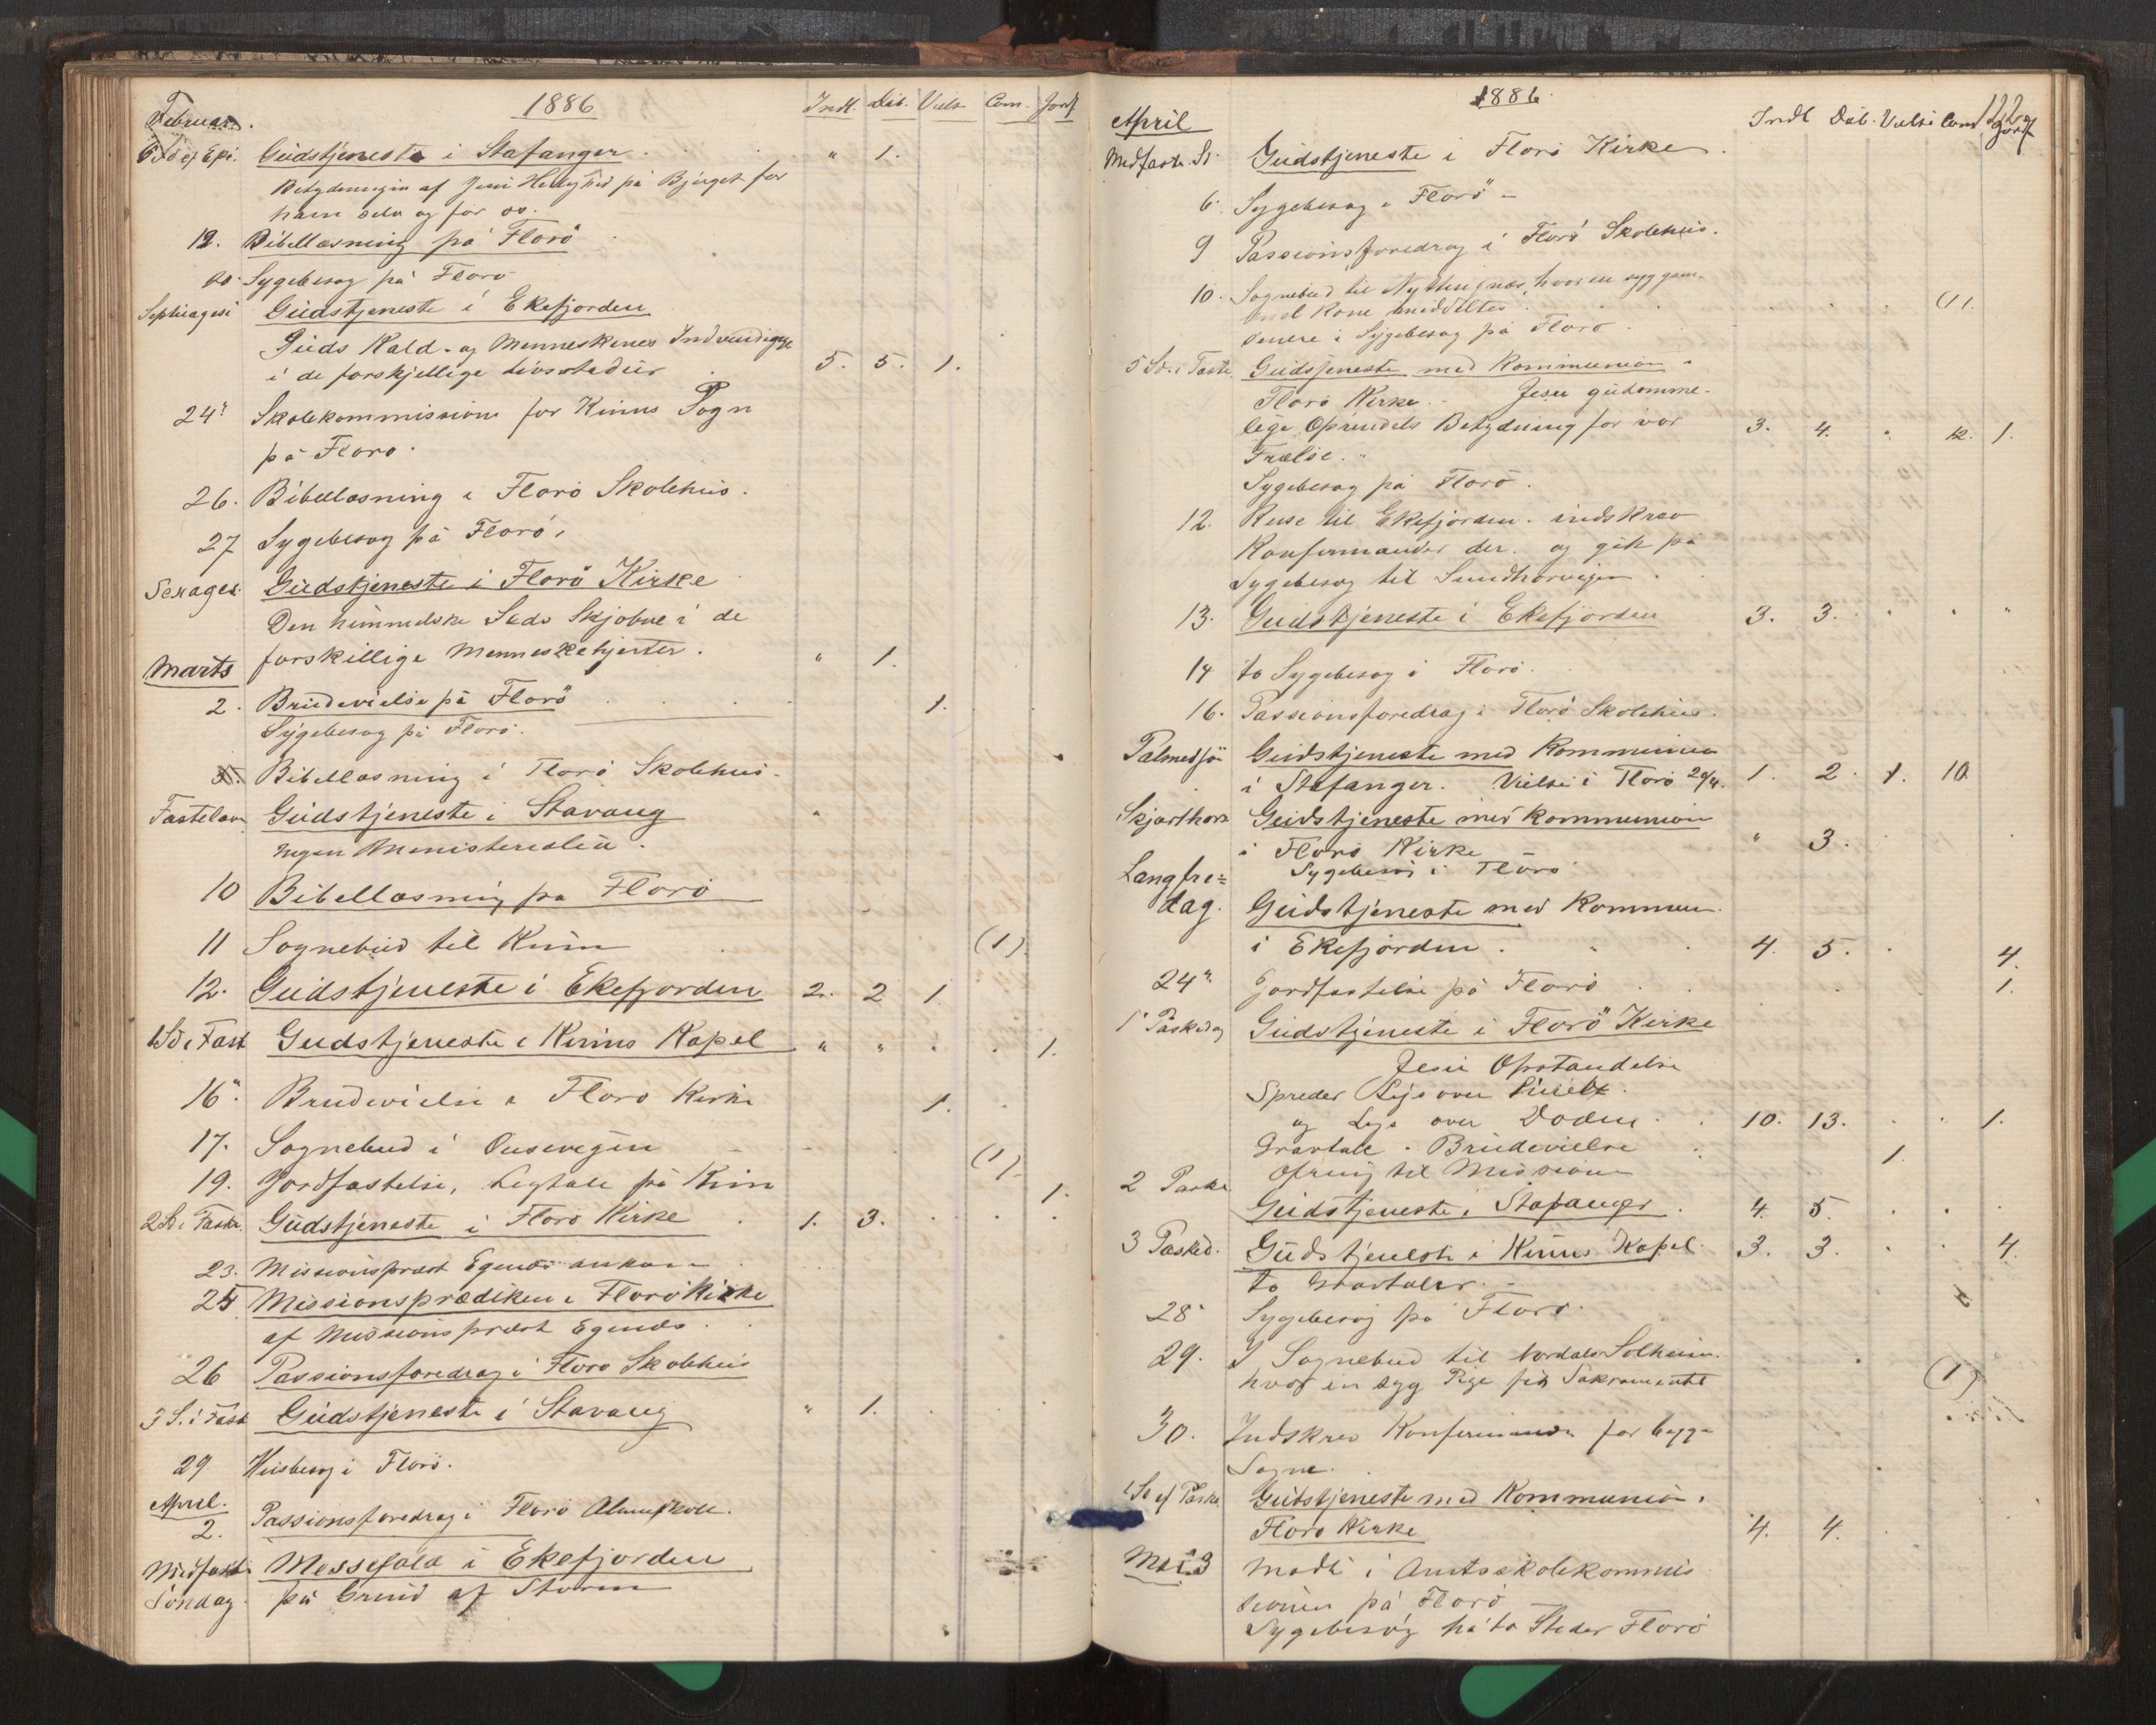 1886
Februar.
Indl. Dåb. Vielse Com. Jordf
6 Sd ef Epi. Gudstjeneste i Stafanger . " 1.
Betydningen af Jesu Herlighed på Bjerget for
ham selv og for os.
12. Bibellæsning på Florö
20. Sygebesøg på Florö
Septuagesi Gudstjeneste i Ekefjorden
Guds Kald - og Menneskenes Indvendinger
i de forskjellige Livsstadier 5. 5. 1.
24de Skolekommission for Kinns Sogn
på Florö.
26. Bibellæsning i Florö Skolehus.
27 Sygebesøg på Florö.
Sexages. Gudstjeneste i Florö Kirke
Den himmelske Sæds Skjæbne i de
forskillige Menneskehjerter. " 1.
Marts
2. Brudevielse på Florö 1.
Sygebesøg på Florö.
5. Bibellæsning i Florö Skolehus.
Fastelavn Gudstjeneste i Stavang "
Ingen Ministerialia.
10 Bibellæsning på Florö
11 Sognebud til Kinn (1)
12. Gudstjeneste i Ekefjorden 2. 2 1
1 Sd i Fast Gudstjeneste i Kinns Kapel " " . . 1.
16de Brudevielse i Florö Kirke 1.
17. Sognebud i (1)
19. Jordfæstelse, Ligtale på Kinn 1.
2 Sd i Faste. Gudstjeneste i Florö Kirke 1. 3.
23. Missionsprest Egenæs ankom
25 Missionsprædiken i Florö Kirke
af Missionsprest Egenæs.
26 Passionsforedrag i Florö Skolehus
3 S. i Fast Gudstjeneste i Stavang " 1.
29 Husbesøg i Florö.
April.
2. Passionsforedrag i Florö Almueskole.
Midfaste Messefald i Ekefjorden
Söndag på Grund af Storm
1886.
122
April
Indl Dåb. Vielse Com Jordf
Midfaste Sd. Gudstjeneste i Florö Kirke
6. Sygebesøg i Florö
9 Passionsforedrag i Florö Skolehus.
10. Sognebud til Nyttingnæs, hvor en syg gam-
mel Kone meddeltes (1).
senere i Sygebesøg på Florö
5 Sd. i Faste Gudstjeneste med Kommunion i
Florö Kirke. Jesu guddomme-
lige Oprindels Betydning for vor 3. 4. " 12. 1.
Frelse.
Sygebesøg på Florö.
12. Reise til Ekefjorden. indskrev
Konfirmander der. og gik på
Sygebesøg til
13. Gudstjeneste i Ekefjorden 3. 3. " " "
14 to Sygebesøg i Florö.
16. Passionsforedrag i Florö Skolehus.
Palmesön Gudstjeneste med Kommunion
i Stafanger. Vielse i Florö 20/4. 1. 2. 1. 10.
Skjærthors Gudstjeneste med Kommunion
i Florö Kirke " 3.
Langfre= Sygebesøg i Florö
dag. Gudstjeneste med Kommun.
i Ekefjorden. 4. 5. 4.
24de Jordfæstelse på Florö 1.
1 Påskedag Gudstjeneste i Florö Kirke
Jesu Opstandelse
Spreder Lys over Livet
og Lys over Döden. 10. 13. 1.
Gravtale. Brudevielse 1.
Ofring til Missionen
2 Påske Gudstjeneste i Stafanger 4. 5.
3 Påsked. Gudstjeneste i Kinns Kapel 3. 3. 4.
to Gravtaler.
28 Sygebesøg på Florö.
29. I Sognebud til Nordals Solheim
hvor en syg Pige fik Sakramentet (1)
30. Indskrev Konfirmander for begge
Sogne.
1 Sd ef Påske Gudstjeneste med Kommunion i
Florö Kirke 4. 4
Mai 3 Mödte i Amtsskolekommis
sionen på Florö
Sygebesøg på to Steder Florö